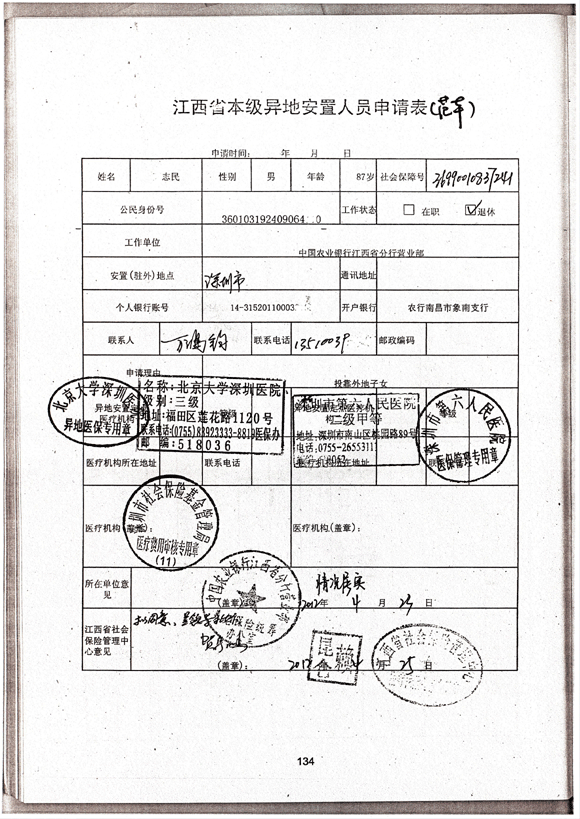 江西省本级异地安置人员申请表(范本)
申请时间： 年 月 日
姓名 志民 性别 男 年龄 87岁 社会保障号
公民身份号 360103192409064 0 工作状态 □ 在职 ☑退休
工作单位 中国农业银行江西省分行营业部
安置(驻外)地点 深圳市 通讯地址
个人银行账号 14-31520110003 开户银行 农行南昌市象南支行
联系人 联系电话 1351003 邮政编码
申请理由 投靠外地子女
北京大学深圳医院
异地医保专用章
名称:北京大学深圳医院
级别:三级
地址:福田区莲花路1120号
联系电话:(0755)83923333-8819医保办
邮编:518036
深圳市第六人民医院
二级甲等
地址:深圳市南山区桃园路89号
电话:0755-26553111
深圳市第六人民医院
医保管理专用章
医疗机构所在地址 联系电话 医疗机构所在地址
深圳市社会保险基金管理局
医疗费用审核专用章
(11)
医疗机构(盖章): 医疗机构(盖章):
所在单位意见 情况属实
(盖章): 2012年 4 月 23 日
中国农业银行江西省分行营业部
江西省社会保险管理中心意见
(盖章): 2012 4 25 日
134